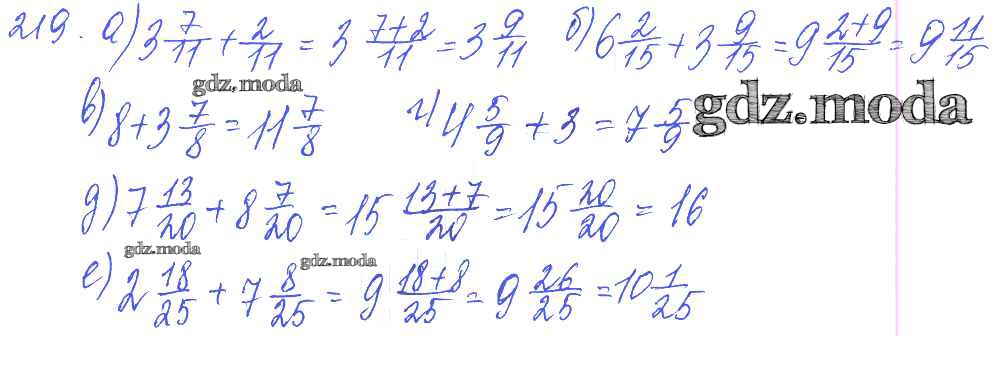 219. а) 3 7/11 + 2/11 = 3 (7+2)/11 = 3 9/11 б) 6 2/15 + 3 9/15 = 9 (2+9)/15 = 9 11/15
gdz.moda
в) 8 + 3 7/8 = 11 7/8 г) 4 5/9 + 3 = 7 5/9 gdz.moda
д) 7 13/20 + 8 7/20 = 15 (13+7)/20 = 15 20/20 = 16
gdz.moda gdz.moda
е) 2 18/25 + 7 8/25 = 9 (18+8)/25 = 9 26/25 = 10 1/25